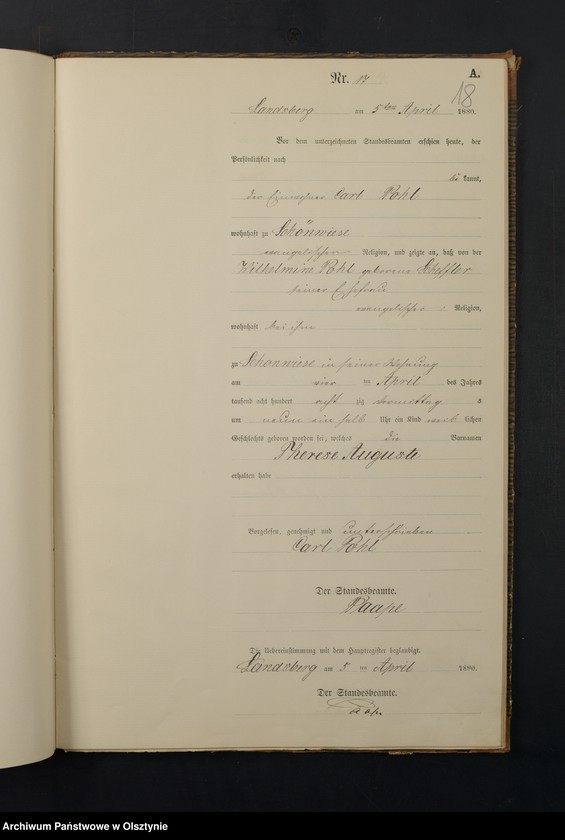 Nr. 17
A.
18
Landsberg am 5ten April 1880.
Vor dem unterzeichneten Standesbeamten erschien heute, der
Persönlichkeit nach
be kannt,
der Einwohner Carl Pohl
wohnhaft zu Schönwiese
evangelischer Religion, und zeigte an, daß von der
Wilhelmine Pohl geborene Scheffler
seiner Ehefrau
evangelischer Religion,
wohnhaft bei ihm
zu Schönwiese in seiner Wohnung
am vier ten April des Jahres
tausend acht hundert acht zig Vormittag s
um neun ein halb Uhr ein Kind weib lichen
Geschlechts geboren worden sei, welches die Vornamen
Therese Auguste
erhalten habe
Vorgelesen, genehmigt und unterschrieben
Carl Pohl
Der Standesbeamte.
Paape
Die Uebereinstimmung mit dem Hauptregister beglaubigt.
Landsberg am 5 ten April 1880.
Der Standesbeamte.
Paape
Archiwum Państwowe w Olsztynie